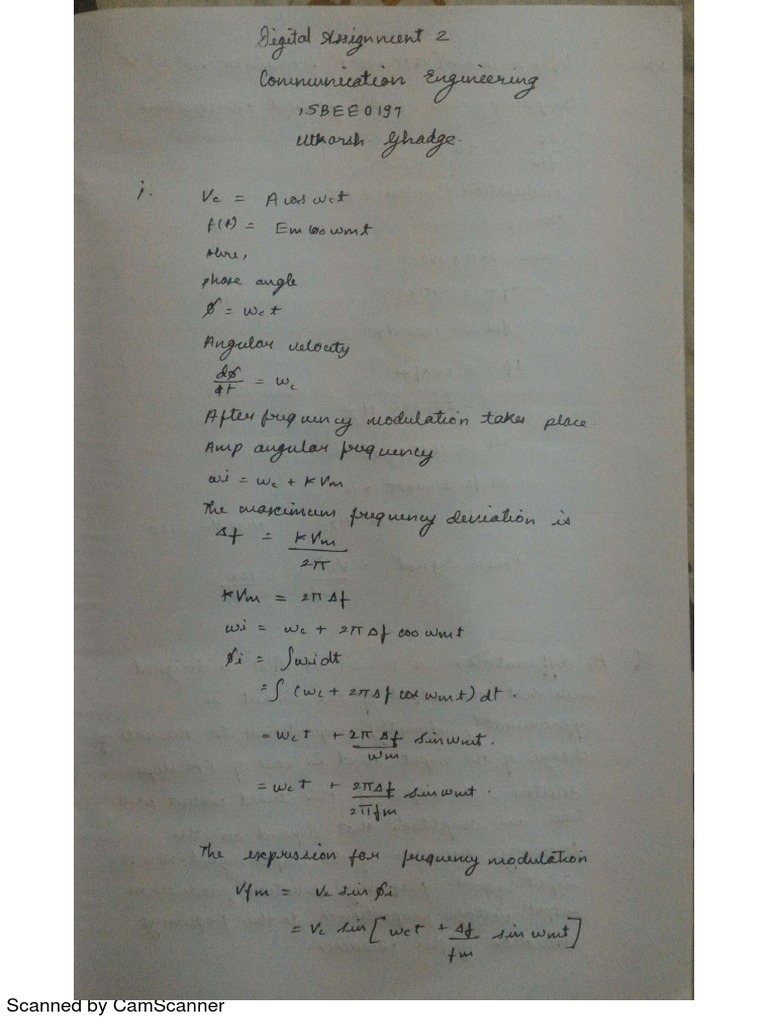 Digital Assignment 2
Communication Engineering
15BEE0197
Utkarsh Ghadge.
1.
Vc = A cos wct
f(t) = Em cos wmt
Here,
phase angle
φ = wct
Angular velocity
dφ/dt = wc
After frequency modulation takes place
Amp angular frequency
wi = wc + KVm
The maximum frequency deviation is
Δf = KVm / 2π
KVm = 2πΔf
wi = wc + 2πΔf cos wmt
φi = ∫widt
= ∫ (wc + 2πΔf cos wmt) dt.
= wct + 2πΔf / wm sin wmt.
= wct + 2πΔf / 2πfm sin wmt.
The expression for frequency modulation
Vfm = Vc sin φi
= Vc sin [ wct + Δf / fm sin wmt ]
Scanned by CamScanner